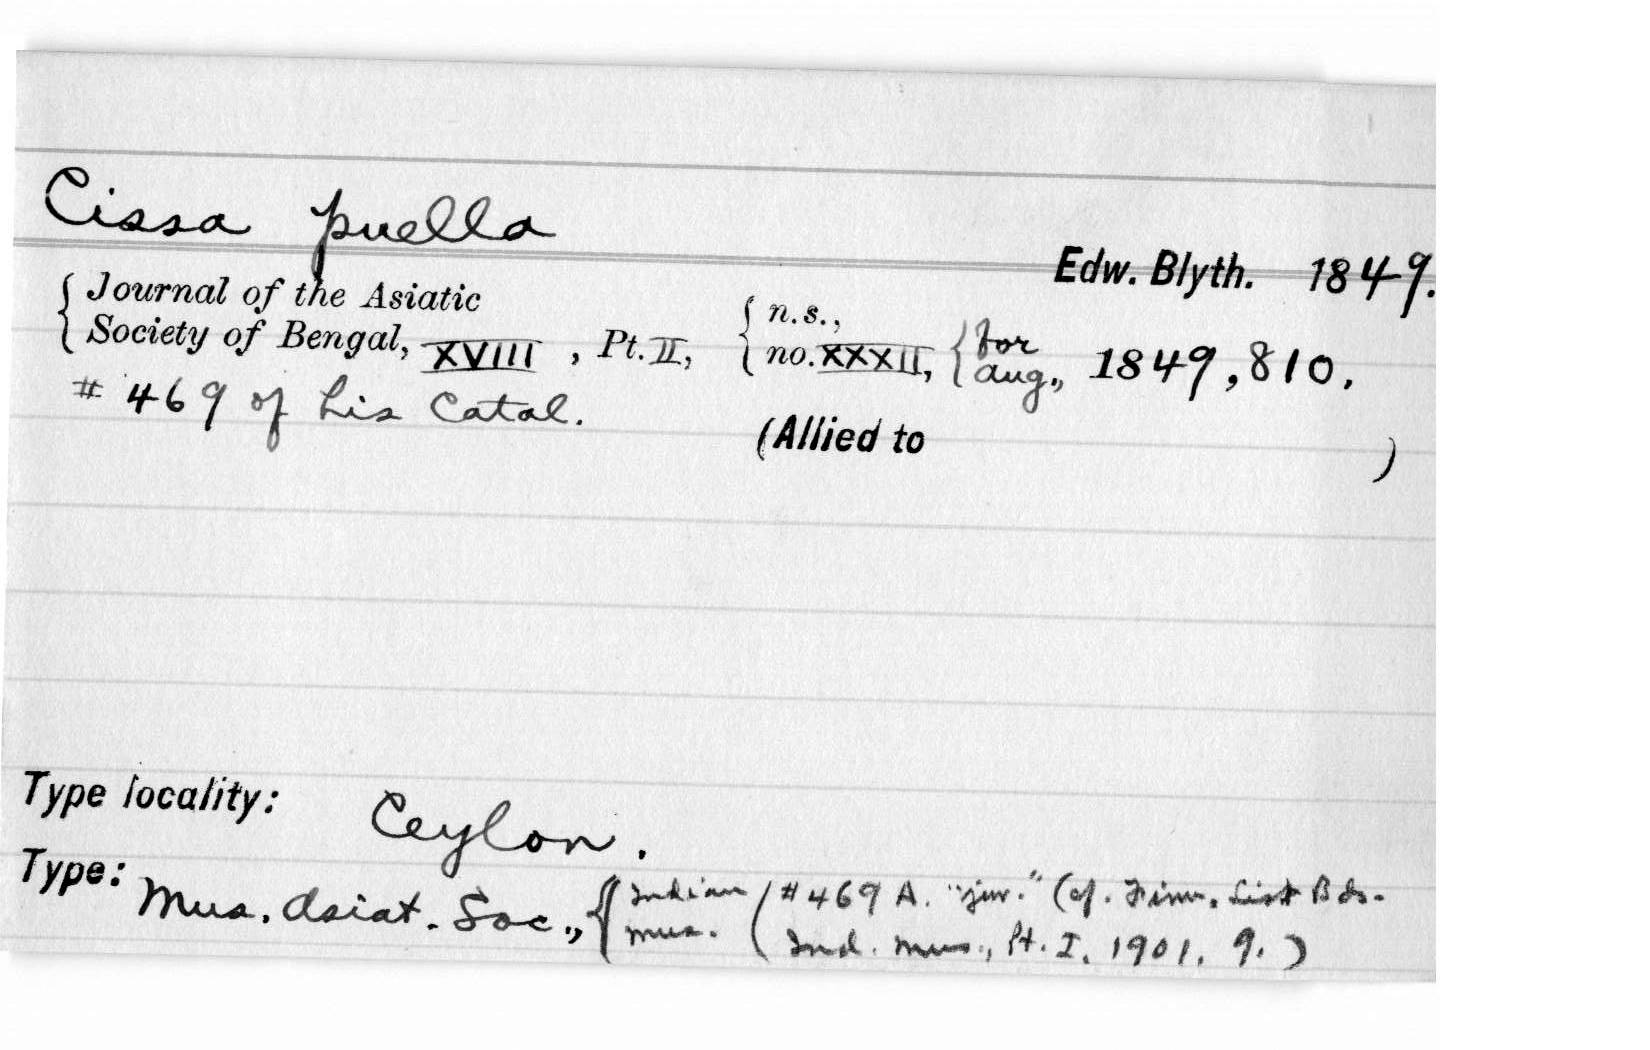 Cissa puella
Edw. Blyth. 1849.
{ Journal of the Asiatic
Society of Bengal, XVIII, Pt. II, { n.s., no. XXXII, { for Aug., 1849, 810.
# 469 of his Catal.
(Allied to )
Type locality: Ceylon.
Type: Mus. Asiat. Soc., { Indian Mus. (# 469 A. "juv." (cf. Finn, List Bds.
Ind. Mus., Pt. I, 1901, 9.)